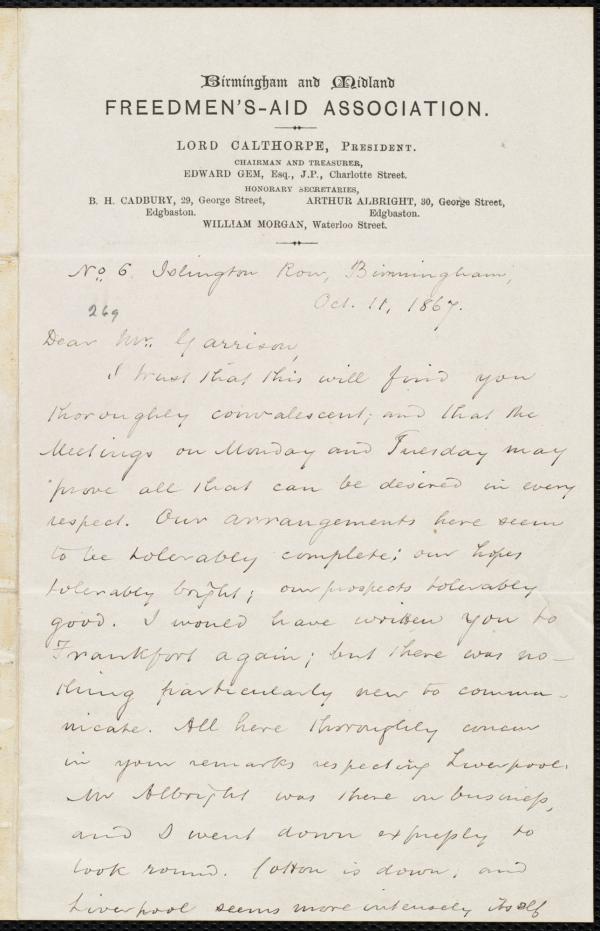 Birmingham and Midland
FREEDMEN'S-AID ASSOCIATION.
LORD CALTHORPE, PRESIDENT.
CHAIRMAN AND TREASURER,
EDWARD GEM, Esq., J.P., Charlotte Street.
HONORARY SECRETARIES,
B. H. CADBURY, 29, George Street, ARTHUR ALBRIGHT, 30, George Street,
Edgbaston. Edgbaston.
WILLIAM MORGAN, Waterloo Street.
No. 6. Islington Row, Birmingham,
Oct. 11, 1867.
269
Dear Mr. Garrison,
I trust that this will find you
thoroughly convalescent; and that the
Meetings on Monday and Tuesday may
prove all that can be desired in every
respect. Our arrangements here seem
to be tolerably complete; our hopes
tolerably bright; our prospects tolerably
good. I would have written you to
Frankfort again; but there was no-
thing particularly new to commu-
nicate. All here thoroughly concur
in your remarks respecting Liverpool.
Mr Albright was there on business,
and I went down expressly to
look round. Cotton is down, and
Liverpool seems more intensely itself